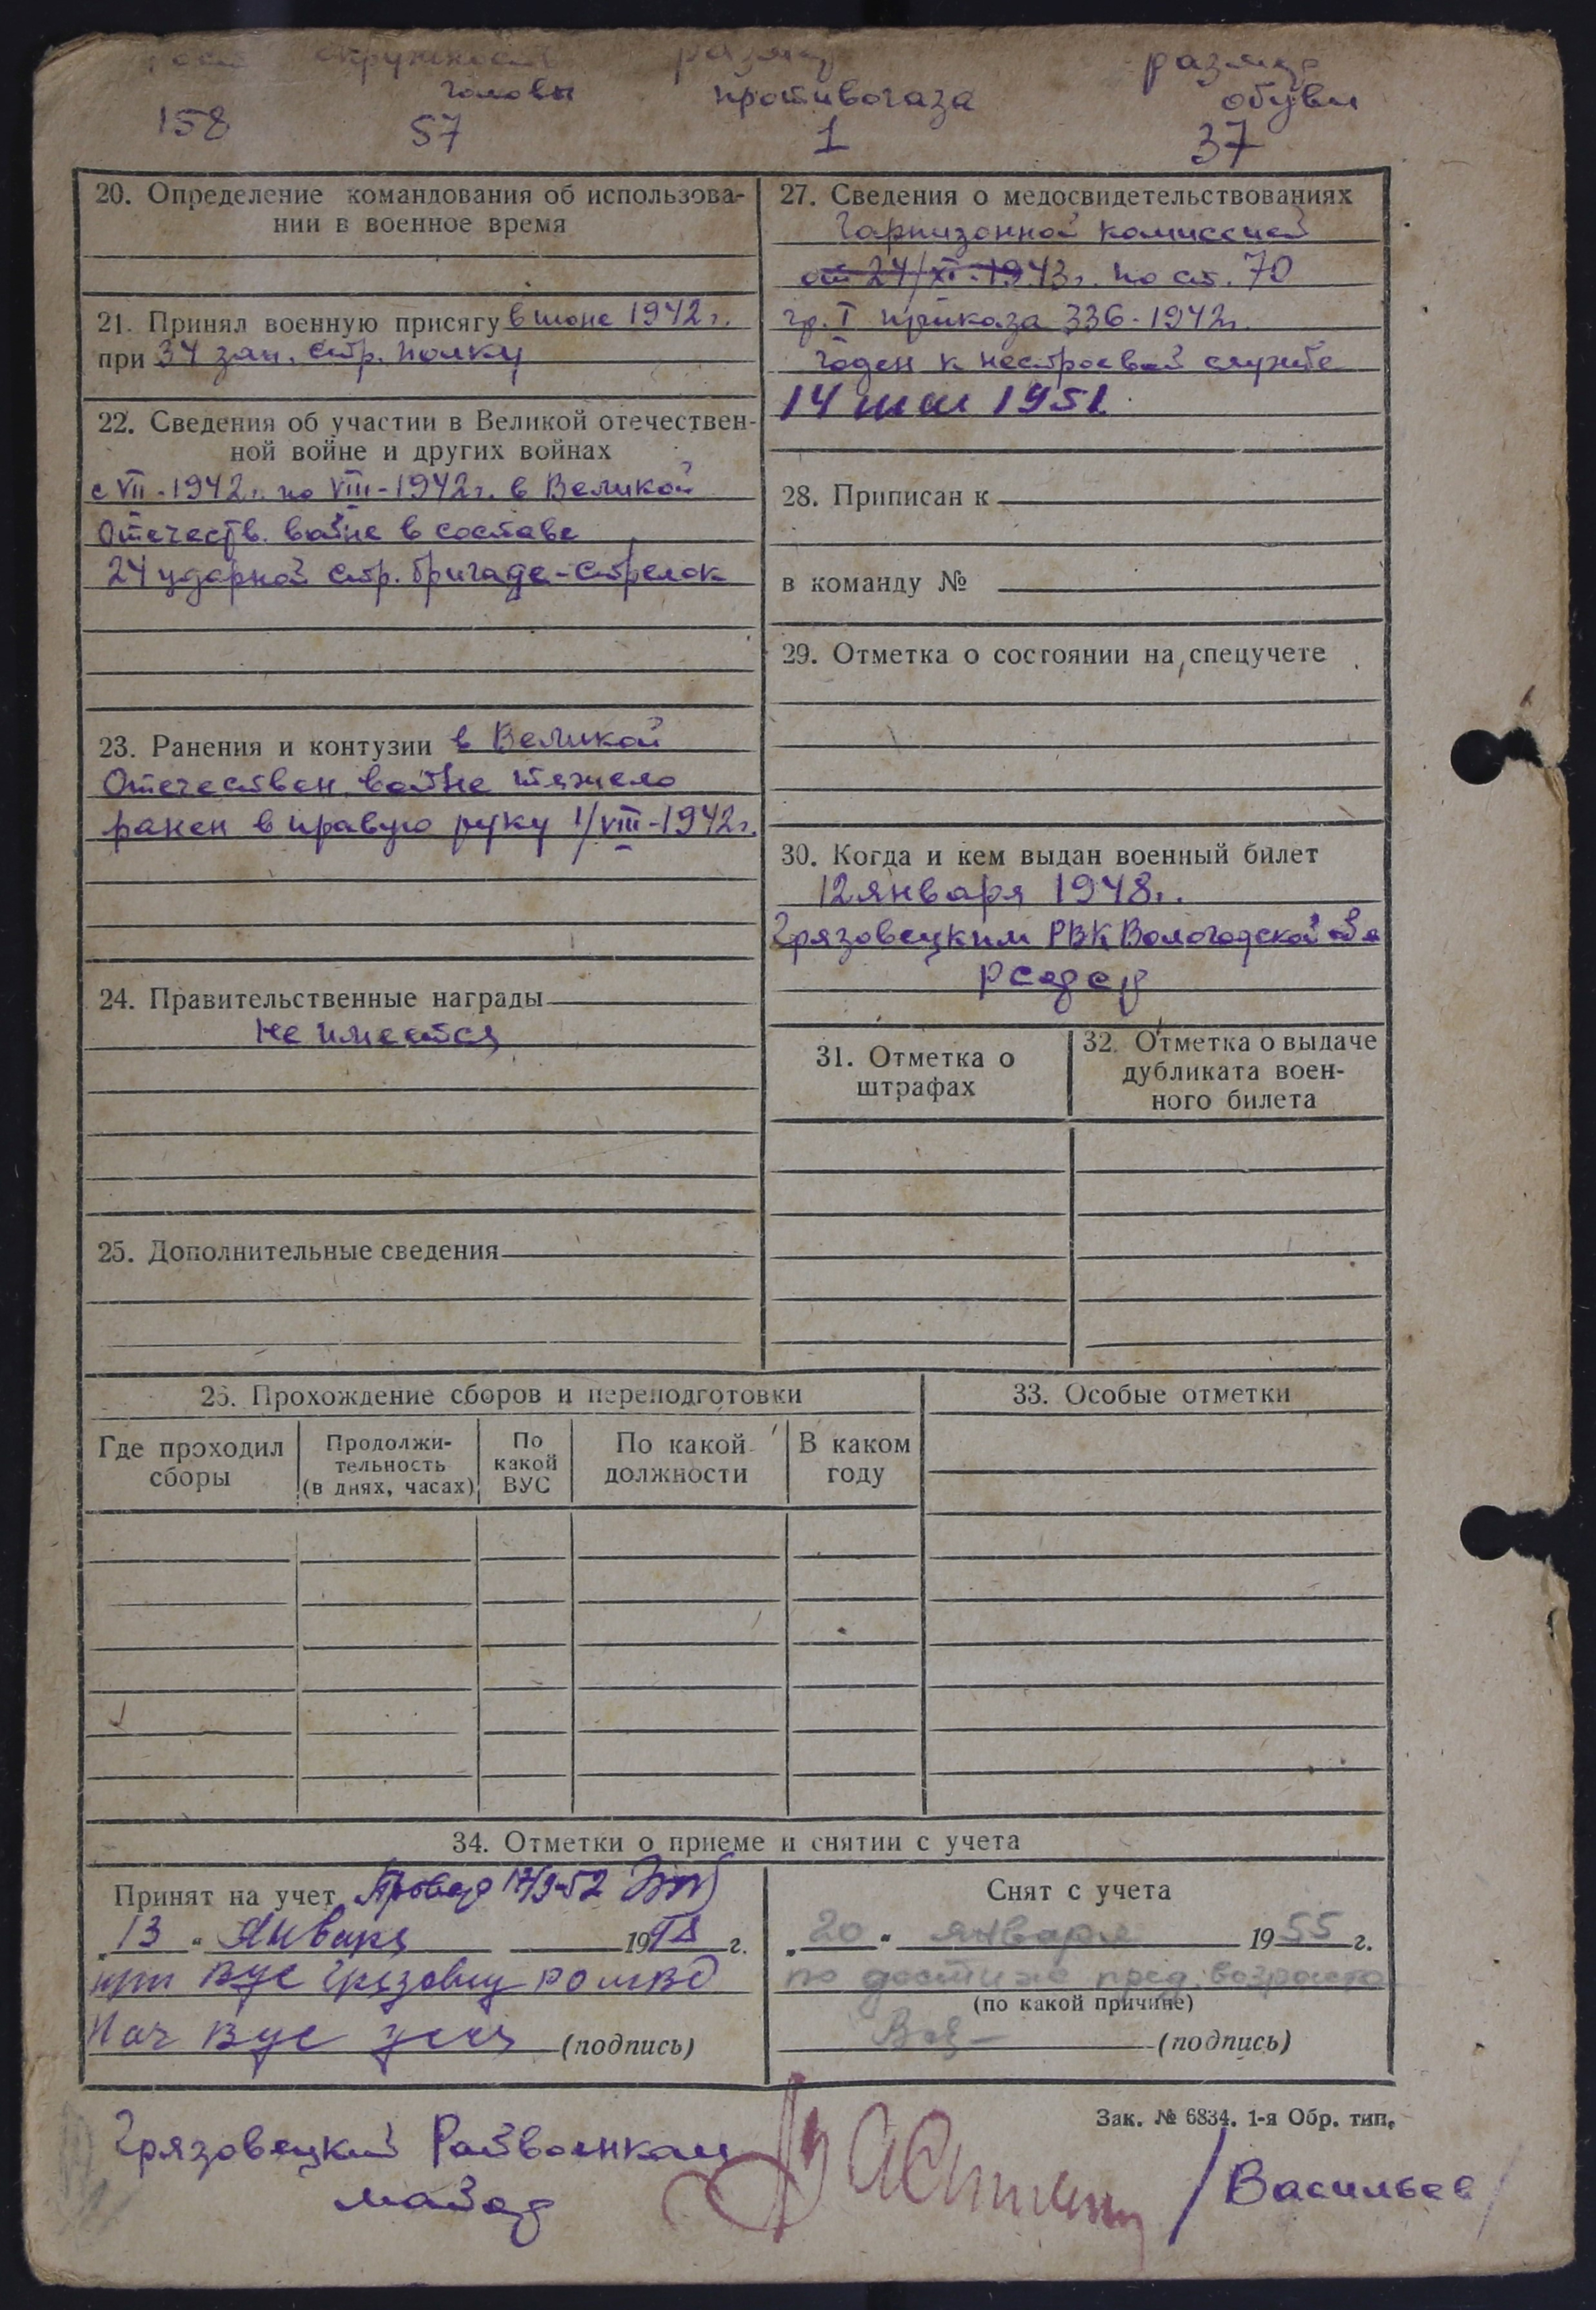 рост окружность размер размер
головы противогаза обуви
158 57 1 37
20. Определение командования об использова-
нии в военное время
21. Принял военную присягу в июне 1942 г.
при 34 зап. стр. полку
22. Сведения об участии в Великой отечествен-
ной войне и других войнах
с VII-1942 г. по VIII-1942 г. в Великой
Отечеств. войне в составе
24 ударной стр. бригаде-стрелок
23. Ранения и контузии в Великой
Отечествен. войне тяжело
ранен в правую руку 1/VIII-1942 г.
24. Правительственные награды
Не имеется
25. Дополнительные сведения
27. Сведения о медосвидетельствованиях
Гарнизонной комиссией
от 24/XI-1943 г. по ст. 70
гр. I приказа 336-1942 г.
годен к нестроевой службе
14 мая 1951
28. Приписан к
в команду №
29. Отметка о состоянии на спецучете
30. Когда и кем выдан военный билет
12 января 1948 г.
Грязовецким РВК Вологодской
РСФСР
31. Отметка о
штрафах
32. Отметка о выдаче
дубликата воен-
ного билета
26. Прохождение сборов и переподготовки
Где проходил
сборы
Продолжи-
тельность
(в днях, часах)
По
какой
ВУС
По какой
должности
В каком
году
33. Особые отметки
34. Отметки о приеме и снятии с учета
Принят на учет
„13“ Января 1948 г.
при ВУС Грязовец РО МВД
Нач ВУС (подпись)
Снят с учета
„20“ января 1955 г.
по достиже пред. возраста
(по какой причине)
(подпись)
Зак. № 6834. 1-я Обр. тип.
Грязовецкий Райвоенком
майор /Васильев/